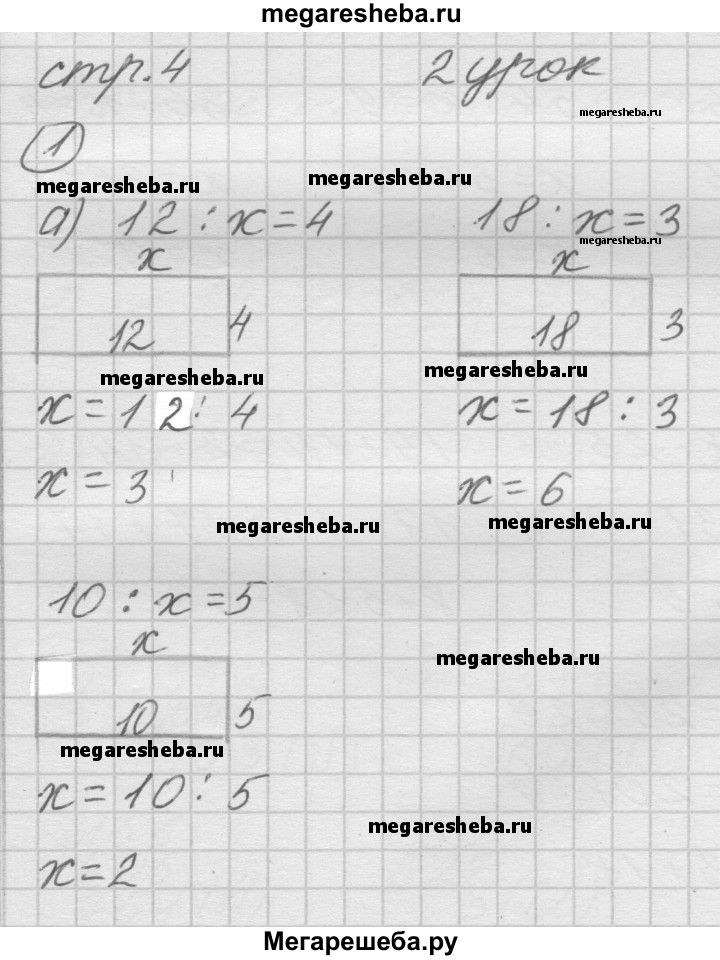 megaresheba.ru
стр. 4 2 урок
megaresheba.ru
1
megaresheba.ru megaresheba.ru
а) 12 : x = 4 18 : x = 3
megaresheba.ru
x x
12 4 18 3
megaresheba.ru megaresheba.ru
x = 12 : 4 x = 18 : 3
x = 3 x = 6
megaresheba.ru megaresheba.ru
10 : x = 5
x
megaresheba.ru
10 5
megaresheba.ru
x = 10 : 5
megaresheba.ru
x = 2
Мегарешеба.ру